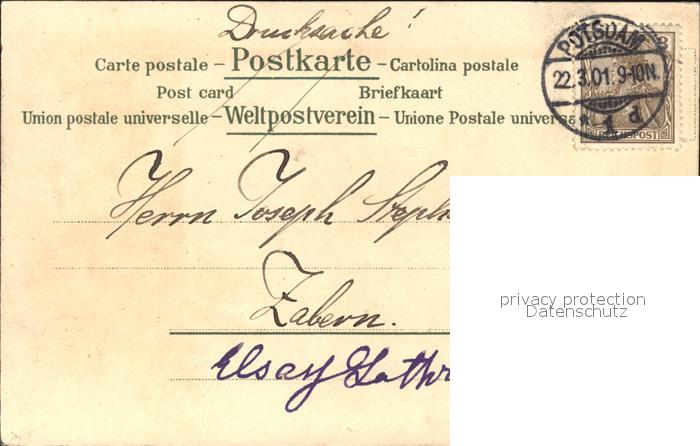 Drucksache!
Carte postale – Postkarte – Cartolina postale
Post card Briefkaart
Union postale universelle – Weltpostverein – Unione Postale universa
POTSDAM
22.3.01. 9-10N.
* 1 d
3
REICHSPOST
Herrn Joseph Steph
Zabern.
Elsass Lothr
privacy protection
Datenschutz